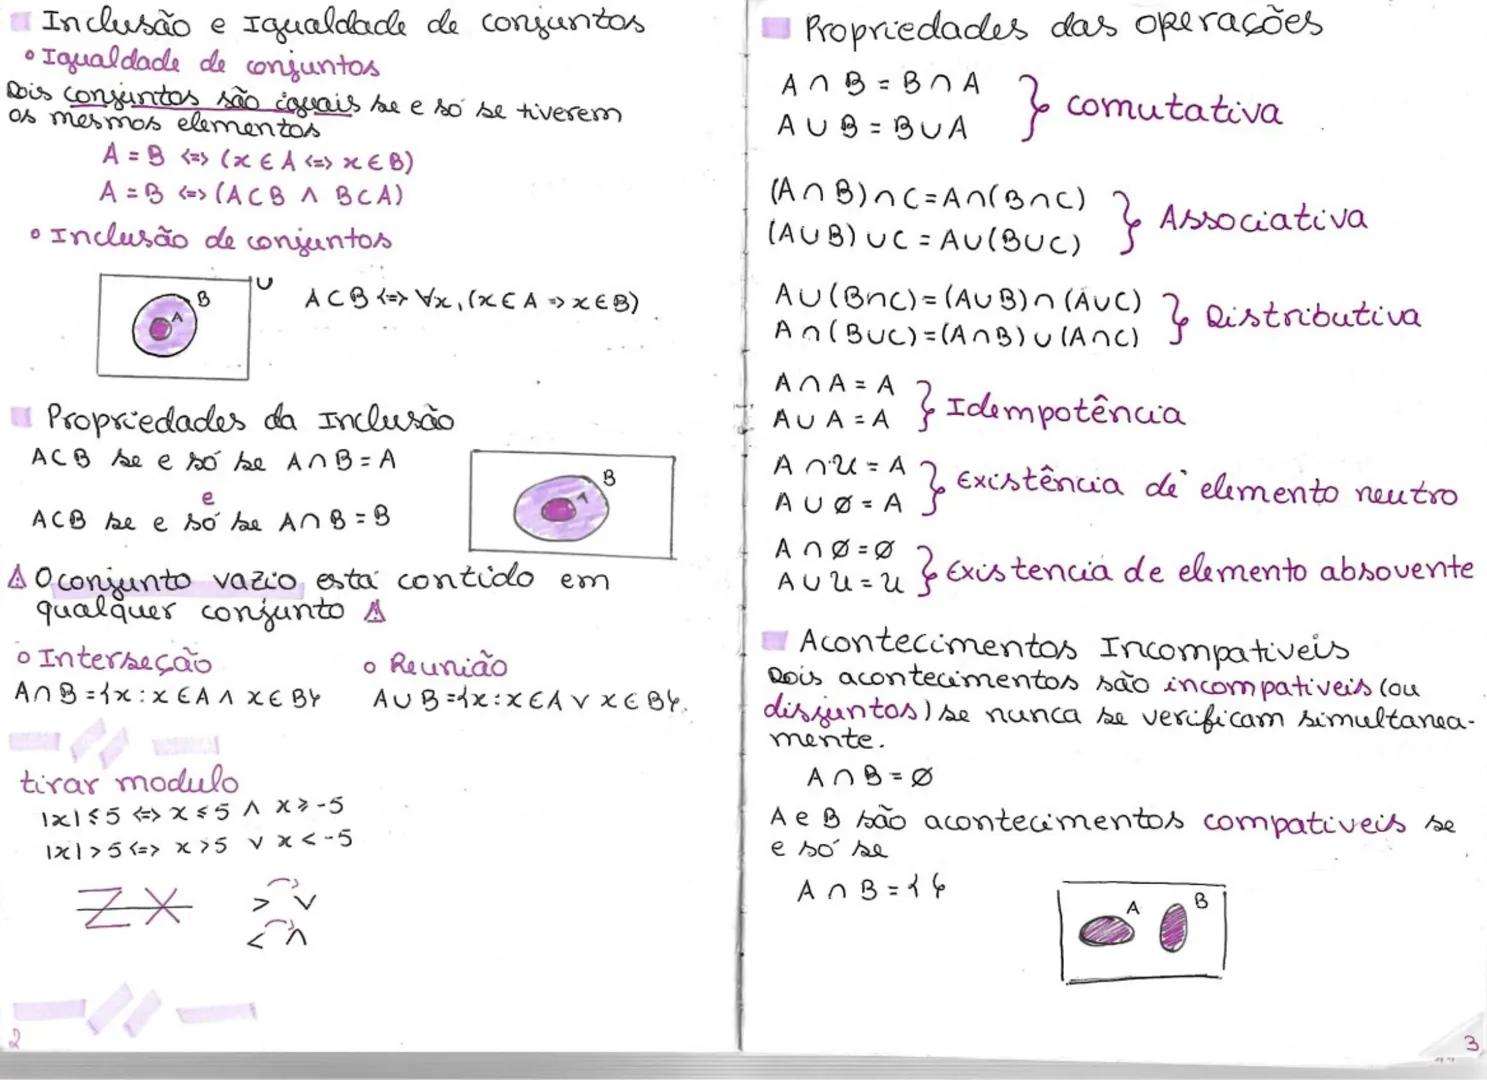 Inclusão e Igualdade de conjuntos
• Igualdade de conjuntos
Dois conjuntos são iguais se e só se tiverem
os mesmos elementos
A = B <=> (x ∈ A <=> x ∈ B)
A = B <=> (A⊂B ∧ B⊂A)
• Inclusão de conjuntos
U
B
A
A⊂B <=> ∀x, (x∈A => x∈B)
Propriedades da Inclusão
A⊂B se e só se A∩B = A
e
A⊂B se e só se A∩B = B
B
A
⚠ O conjunto vazio está contido em
qualquer conjunto ⚠
o Interseção
A∩B = {x : x∈A ∧ x∈B}
o Reunião
A∪B = {x : x∈A ∨ x∈B}.
tirar modulo
|x| ≤ 5 <=> x ≤ 5 ∧ x ≥ -5
|x| > 5 <=> x > 5 ∨ x < -5
> ∨
< ∧
2
Propriedades das operações
A ∩ B = B ∩ A
A ∪ B = B ∪ A
} comutativa
(A∩B)∩C = A∩(B∩C)
(A∪B)∪C = A∪(B∪C)
} Associativa
A∪(B∩C) = (A∪B)∩(A∪C)
A∩(B∪C) = (A∩B)∪(A∩C)
} Distributiva
A∩A = A
A∪A = A
} Idempotência
A∩U = A
A∪∅ = A
} Existência de elemento neutro
A∩∅ = ∅
A∪U = U
} Existencia de elemento absovente
Acontecimentos Incompativeis
Dois acontecimentos são incompativeis (ou
disjuntos) se nunca se verificam simultanea-
mente.
A∩B = ∅
A e B são acontecimentos compativeis se
e só se
A∩B = { }
A
B
3